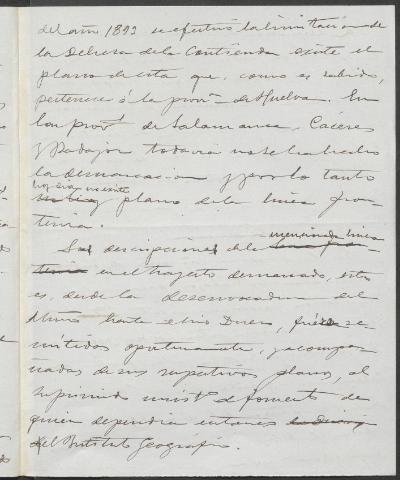 del año 1893 se efectuó la limitación de
la Dehesa de la Contienda existe el
plano de esta que, como es sabido,
pertenece á la prov.ª de Huelva. En
las prov.s de Salamanca, Cáceres
y Badajoz todavia no se ha hecho
la demarcacion y por lo tanto
no hay
plano de la linea fron-
teriza.
Las descripciones de la mencionada linea
en el trayecto demarcado, esto
es, desde la desembocadura del
Miño hasta el rio Duero, fueron re-
mitidas oportunamente, y acompa-
ñadas de sus respectivos planos, al
suprimido minist.º de fomento de
quien dependia entonces
el Instituto Geográfico.